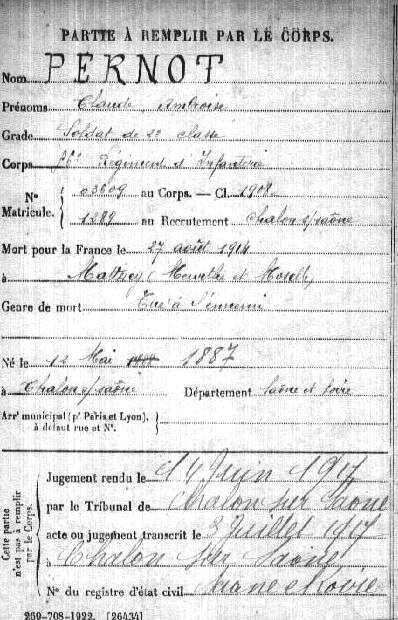 PARTIE À REMPLIR PAR LE CORPS.
Nom PERNOT
Prénoms Claude Ambroise
Grade Soldat de 2e classe
Corps Régiment d'Infanterie
N° 03609 au Corps. — Cl. 1908
Matricule. 1289 au Recrutement Chalon s/saône
Mort pour la France le 27 août 1914
à (Meurthe et Moselle)
Genre de mort Tué à l'ennemi
Né le 12 Mai 1887
à Chalon s/saône Département Saône et Loire
Arrt municipal (pr Paris et Lyon),
à défaut rue et N°.
Cette partie
n'est pas à remplir
par le Corps.
Jugement rendu le 14 Juin 1917
par le Tribunal de Chalon sur Saone
acte ou jugement transcrit le 3 Juillet 1917
à Chalon sur Saone
N° du registre d'état civil
259-708-1922. [26434]